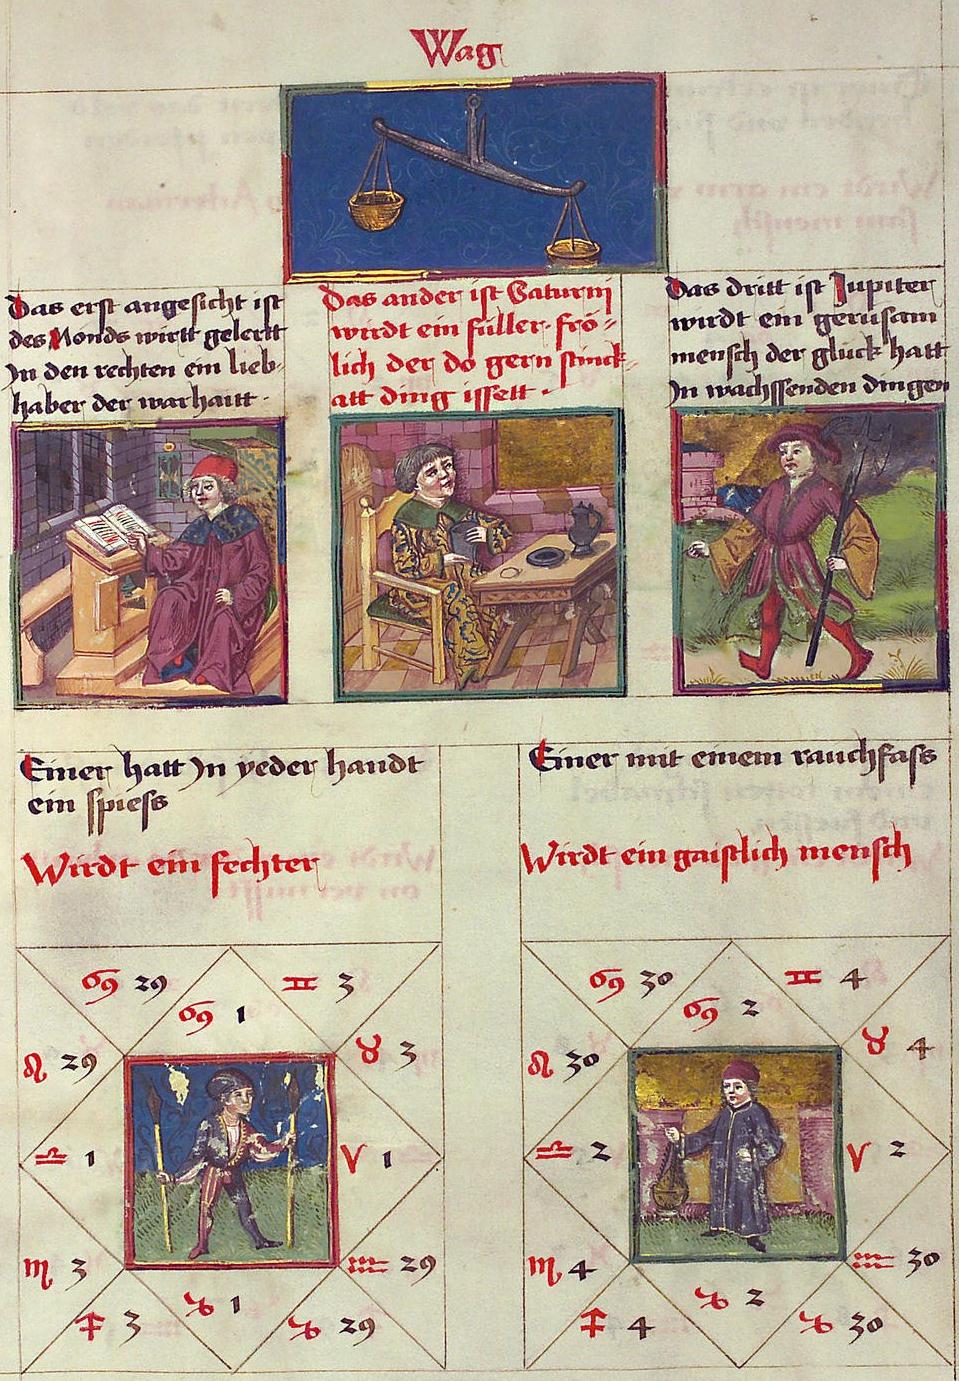 Wag
Das erst angesicht ist
des Monds wirtt gelertt
In den rechten ein lieb-
haber der warhaitt ·
Das ander ist Saturnj
wirdt ein füller frö-
lich der do gern stinck-
att ding issett ·
Das dritt ist Jupiter
wirdt ein gerusam
mensch der glück hatt
In wachssenden dingen
Einer hatt In yeder handt
ein spiess
Wirdt ein fechter
♋ 29
♊ 3
♋ 1
♌ 29
♉ 3
♎ 1
♈ 1
♏ 3
♒ 29
♐ 3
♑ 1
♑ 29
Einer mit einem rauchfass
Wirdt ein gaistlich mensch
♋ 30
♊ 4
♋ 2
♌ 30
♉ 4
♎ 2
♈ 2
♏ 4
♒ 30
♐ 4
♑ 2
♑ 30